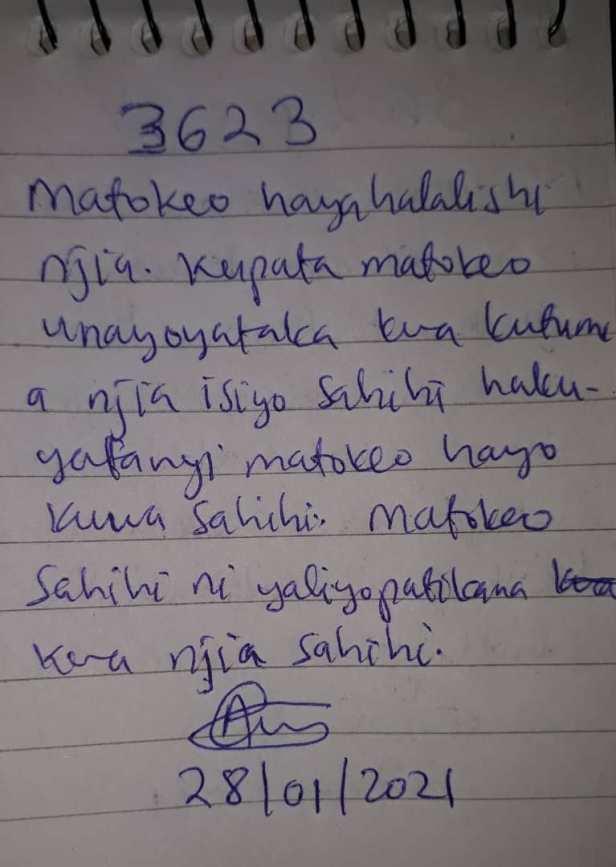 3623
Matokeo hayahalalishi
njia. Kupata matokeo
unayoyataka kwa kutumi
a njia isiyo sahihi haku-
yafanyi matokeo hayo
kuwa sahihi. Matokeo
sahihi ni yaliyopatikana kwa
kwa njia sahihi.
28/01/2021